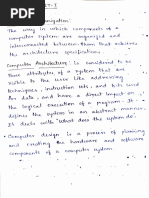 The way in which components of a
computer system are organized and
interconnected between them that achieves
the architecture specifications.
Computer Architecture: is considered to be
those attributes of a system that are
visible to the user like addressing
techniques, instruction sets, and bits used
for data, and have a direct impact on
the logical execution of a program. It
defines the system in an abstract manner.
It deals with "What does the system do".
Computer design is a process of planning
and creating the hardware and software
components of a computer system